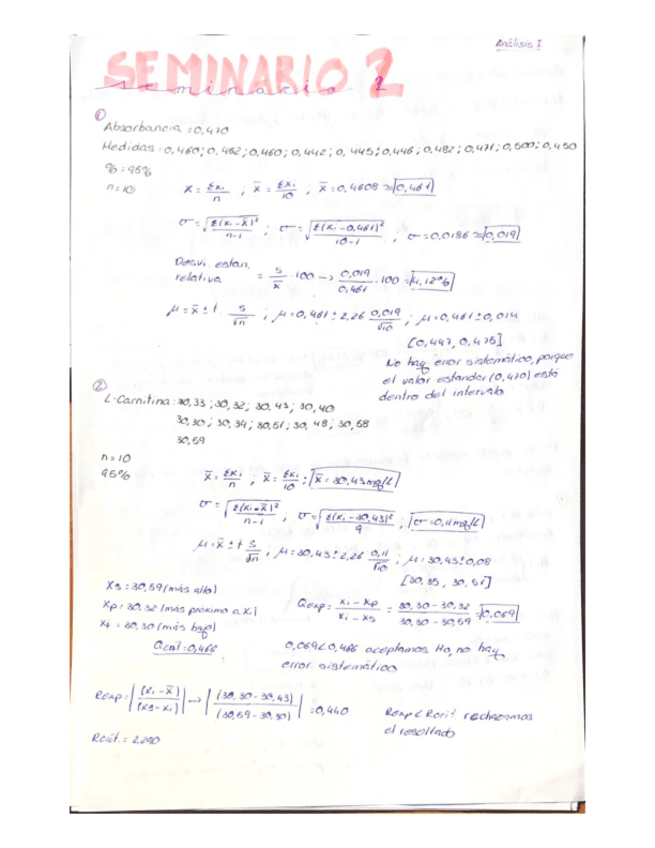 Análisis I
SEMINARIO 2
seminario 2
①
Absorbancia = 0,470
Medidas: 0,460; 0,452; 0,460; 0,442; 0,445; 0,446; 0,482; 0,471; 0,500; 0,450
% = 95%
n = 10
x̄ = Σxi/n ; x̄ = Σxi/10 ; x̄ = 0,4608 ≈ 0,461
σ = √(Σ(xi - x̄)²/n-1) ; σ = √(Σ(xi - 0,461)²/10-1) ; σ = 0,0186 ≈ 0,019
Desvi. estan. relativa = s/x̄ · 100 → 0,019/0,461 · 100 = 4,12%
μ = x̄ ± t · s/√n ; μ = 0,461 ± 2,26 0,019/√10 ; μ = 0,461 ± 0,014
[0,447, 0,475]
No hay error sistemático, porque
el valor estandar (0,470) está
dentro del intervalo
②
L-Carnitina: 30,33; 30,32; 30,43; 30,40
30,30; 30,34; 30,51; 30,48; 30,58
30,59
n = 10
95%
x̄ = Σxi/n ; x̄ = Σxi/10 ; x̄ = 30,43 mg/L
σ = √(Σ(xi - x̄)²/n-1) ; σ = √(Σ(xi - 30,43)²/9) ; σ = 0,11 mg/L
μ = x̄ ± t s/√n ; μ = 30,43 ± 2,26 0,11/√10 ; μ = 30,43 ± 0,08
[30,35, 30,51]
Xs = 30,59 (más alto)
Xp = 30,32 (más próximo a xi)
Xi = 30,30 (más bajo)
Qcrit = 0,466
Qexp = xi - xp/xi - xs = 30,30 - 30,32/30,30 - 30,59 = 0,069
0,069 < 0,466 aceptamos Ho, no hay
error sistemático
Rexp = |(xi - x̄)/(xs - xi)| → |(30,30 - 30,43)/(30,59 - 30,30)| = 0,440
Rcrit. = 2,290
Rexp < Rcrit. rechazamos
el resultado